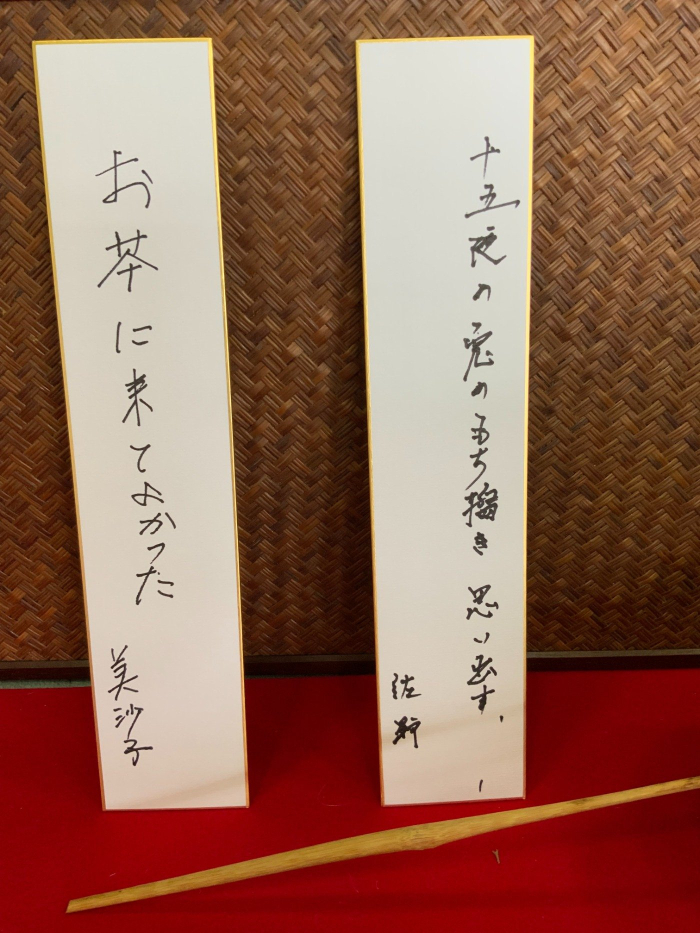 十五夜の兎のもち搗き 思い出す、
お茶に来てよかった
美沙子